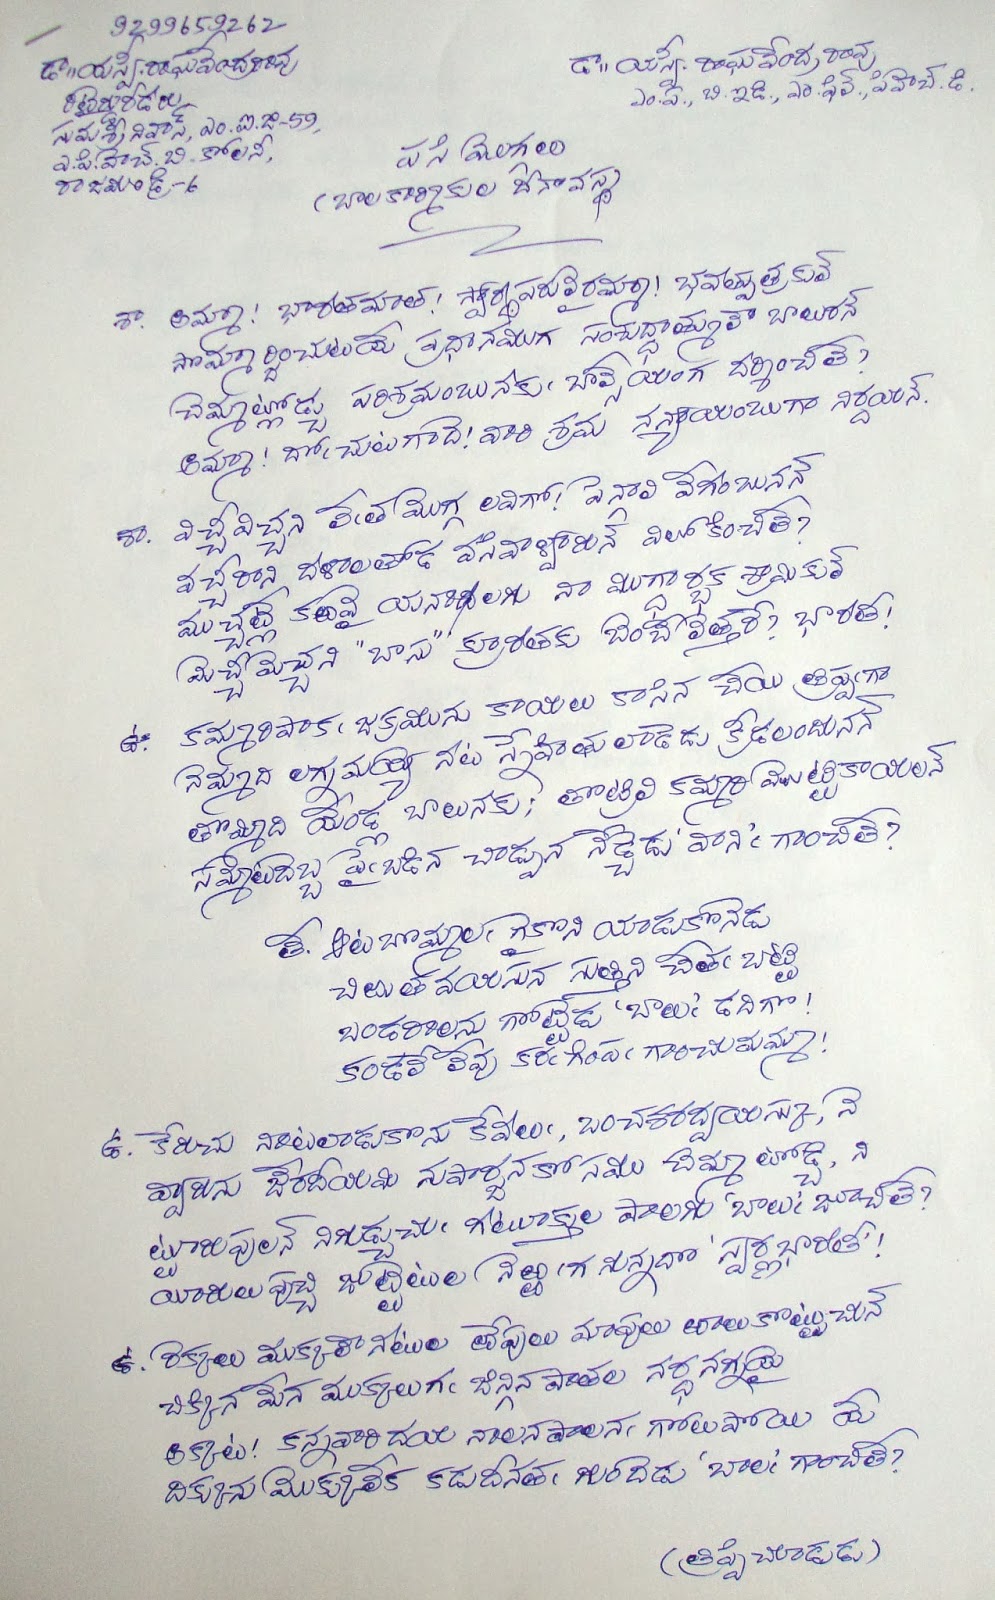 9299659262
డా॥ యస్వీ. రాఘవేంద్రరావు
సుమశ్రీ నివాస్, ఎం.ఐ.జి-59,
ఎ.పి.హెచ్.బి. కాలనీ,
రాజమండ్రి-6
డా॥ యస్వీ. రాఘవేంద్ర రావు
ఎం.ఏ., బి.ఇడి., ఎం.ఫిల్., పిహెచ్.డి.
పసి మొగ్గలు
(బాలకార్మికుల దీనావస్థ)
శా. అమ్మా! భారతమాత! స్వార్థపరులైరమ్మా! భవత్పుత్రకుల్
సొమ్మార్జించుటయే ప్రధానముగ సంశుద్ధాత్ములౌ బాలురన్
చెమ్మటోడ్చు పరిశ్రమంబునకుఁ దర్శించితే?
అమ్మా! దోఁచుటగాదె! వారి శ్రమ నన్యాయంబుగా నిర్దయన్.
శా. విచ్చీవిచ్చని లేఁత మొగ్గ లవిగో! పెన్గాలి వేగంబునన్
వచ్చెరాని దళాలతోడ వసివాళ్వారున్ విలోకించితే?
ముచ్చట్లే కఱువై యనాథలగు నా ముగ్ధార్భక శ్రామికుల్
మిచ్చీమెచ్చని "బాసు" క్రూరతకు భారత!
ఉ. కమ్మరిపాకఁ జక్రమును కాయిలు కాసిన చేయి త్రిప్పఁగా
నెమ్మది లగ్నమయ్యె నట స్నేహితులాడెడు క్రీడలందునన్
తొమ్మిది యేండ్ల బాలునకు; తొట్రిలి కమ్మరి మొట్టికాయలన్
సమ్మెటదెబ్బ పైఁబడిన చాడ్పున నేడ్చెడు 'వాని'ఁ గాంచితే?
తే. ఆటబొమ్మలఁ గైకొని యాడుకొనెడు
చిఱుత వయసున సుత్తిని చేతఁ బట్టి
బండరాలను గొట్టెడు 'బాలుఁ' డదిగొ!
కండలే లేవు కరఁగింపఁ గాంచుమమ్మా!
ఉ. కేరుచు నాటలాడుకొను కేవలఁ, బంచశరద్వయస్కు, నె
వ్వారును జేరదీయమి నుపార్జనకోసము చెమ్మటోడ్చి, ని
ట్టూరుపులన్ నిగుడ్చుచుఁ గటూక్తుల పాలగు 'బాలుఁ' జూచితే?
యూరులు పుచ్చి నెట్లుఁగ నున్నదొ 'స్వర్ణభారతీ'!
ఉ. రెక్కలు ముక్కలౌ నటుల రేపులు మాపులు ఱాలుకొట్టుచున్
చిక్కిన మేన ముక్కలుగఁ జిన్గిన పాతల నర్ధనగ్నయై
అక్కట! కన్నవారి దయ నాలనపాలనఁ గోలుపోయి యే
దిక్కును మొక్కులేక కడుదీనతఁ గుందెడు 'బాలఁ' గాంచితే?
(త్రిప్పి చూడుడు)